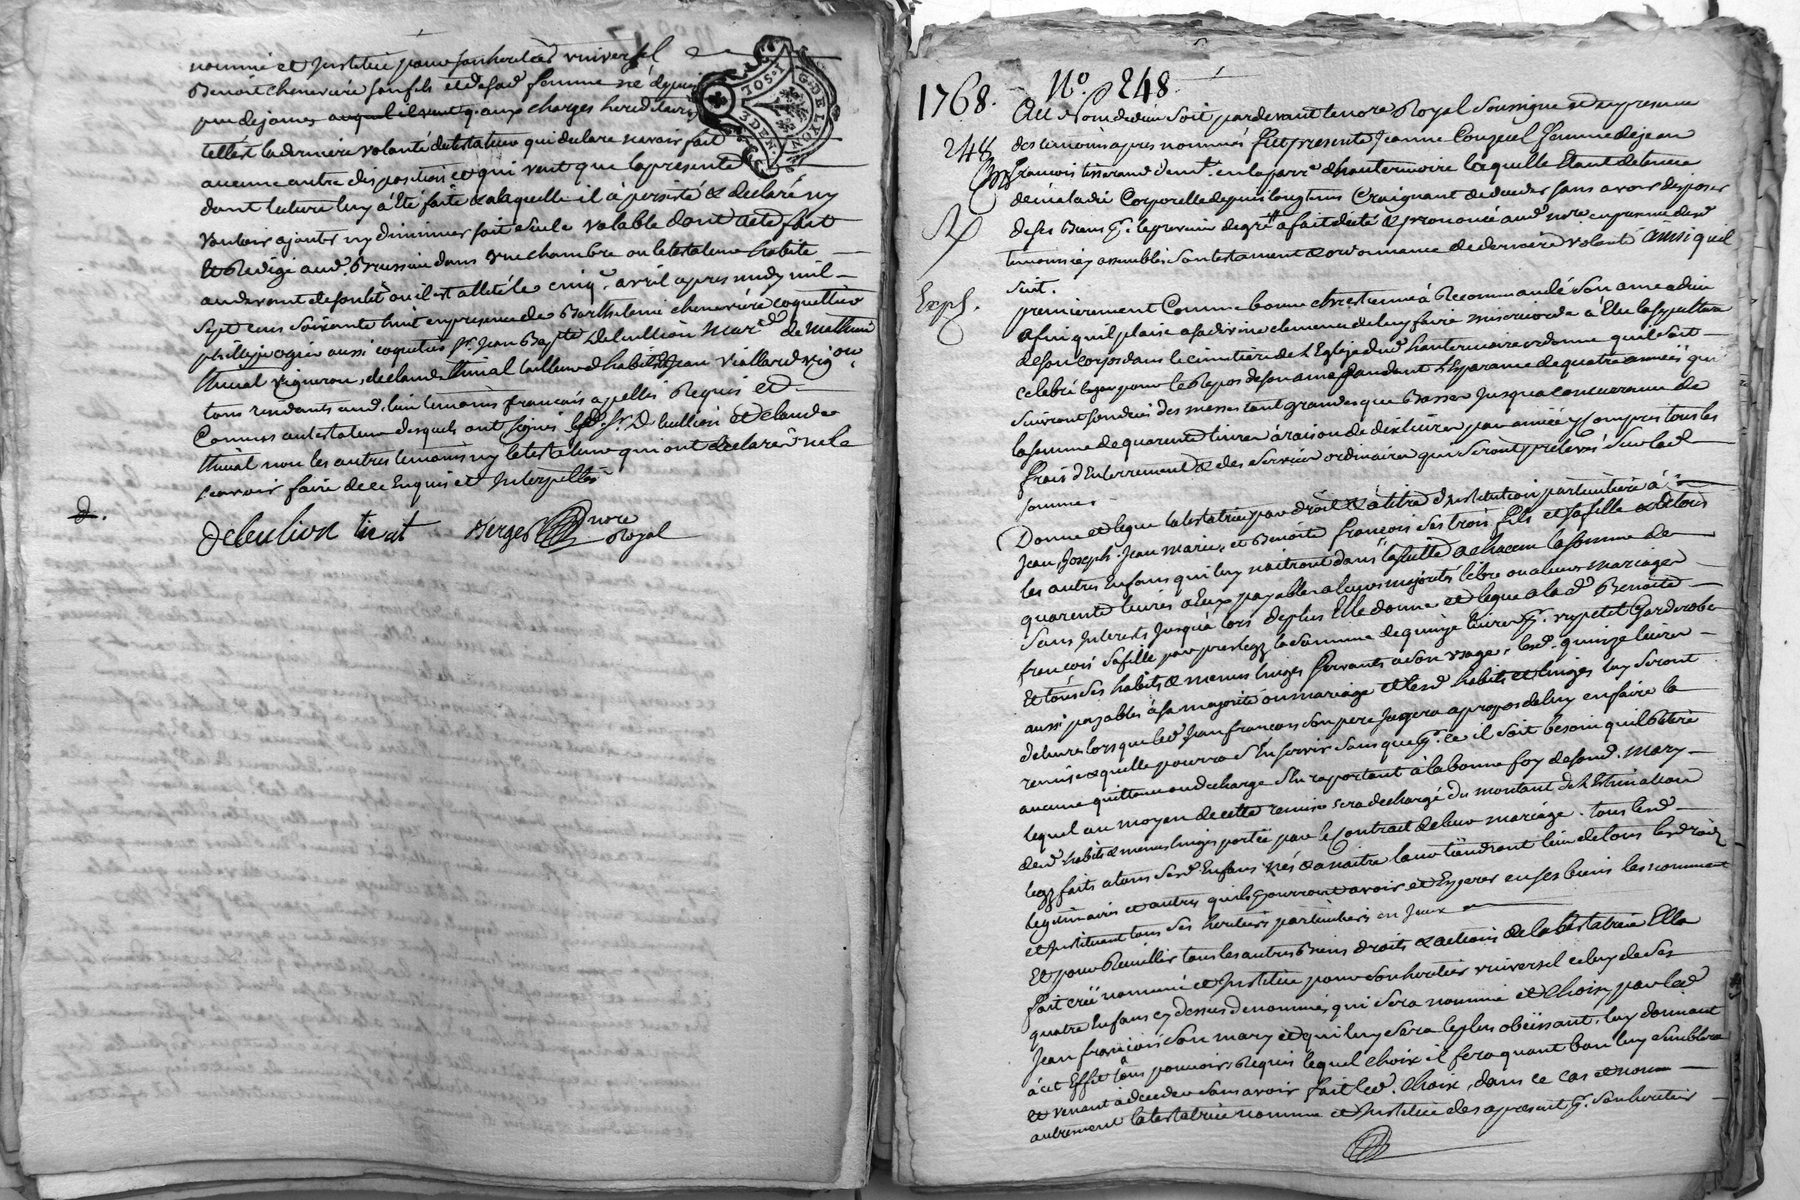 nommé et institué pour son heritier universel
Benoit cheneviere son fils et de sad. femme né depuis
peu de jours auquel il veut qaux charges hereditaires
telle est la derniere volonté du testateur qui declare navoir fait
aucune autre disposition et qui veut que la presente
dont lecture luy a été faite & a laquelle il à persisté & declaré ny
vouloir ajouter ny diminuer soit seule valable dont acte fait
et Redigé aud. Brussieu dans une chambre ou le testateur habite
au devant de son lit ou il est allité le cinq. avril apres midy mil
sept cens soixante huit en presence de Barthelemi cheneviere coquettier
philippe ogier aussi coquetier sr. Jean Bapte Deleullion Mard. de
thivat vigneron, claude thivat tailleur d'habits & Jean Viallard vigon
tous rendants aud. lieu temoins francois apellés Requis et
Connus au testateur desquels ont signés led. Sr. Deleullion et claude
thivat non les autres temoins ny le testateur qui ont declaré ne le
scavoir faire de ce Enquis et Interpellés
Deleulion tivat Berger nore
Royal
TOS. 1
G. DE LYON
3 DEN.
1768. No. 248.
248
Expd.
Au Nom de dieu soit par devant le nore Royal soussigné et en presence
des temoins apres nommés fut presente Jeanne femme de Jean
francois tisserand demt. en la parr. d'hauterivoire laquelle Etant detenue
de maladie Corporelle depuis longtems Craignant de deceder sans avoir disposer
de ses Biens a fait dicté & prononcé aud. nore en presence desd.
temoins icy assemblés son testament & ordonnance de derniere volonté ainsi quil
suit.
premierement Comme bonne chretienne à Recommandé son ame a dieu
afin quil plaise a sa divine clemence de luy faire misericorde à Elle la sepulture
de son corps dans le cimetiere de l'Eglise dud. hauterivoire ordonne quil soit
celebré pour le Repos de son ame pendant l'Esparance de quatre années qui
suivront son deces des messes tant grandes que Basses Jusqua concurrance de
la somme de quarente livres à raison de dix livres par année y compris tous les
frais d'Enterrement & des services ordinaires qui seront prelevés sur lad.
somme.
Donne et legue la testatrice par droit & à titre d'institution particuliere à
Jean Joseph, Jean Marie, et Benoite francois ses trois fils et sa fille & à tous
les autres Enfans qui luy naitront dans la suitte & à chacun la somme de
quarente livres a Eux payables a leurs majorités libre ou a leurs mariages
sans Interets Jusqu'à lors de plus Elle donne et legue a lad. Benoite
francois sa fille par prelegs la somme de quinze livres un petit Garderobe
et tous ses habits & menus linges servants a son usage, lesd. quinze livres
aussi payables à sa majorité ou mariage et lesd. habits et linges luy seront
delivres lorsque led. Jean francois son pere Jugera apropos de luy en faire la
remise & quelle pourra s'En servir sans que pr. ce il soit besoin quil Retire
aucune quittance ou decharge s'En raportant à la bonne foy de sond. mary
lequel au moyen de cette remise sera dechargé du montant de l'Estimation
desd. habits & menus linges portée par le contrat de leur mariage. tous lesd.
legs faits a tous sesd. Enfans nés & a naitre leur tiendront lieu de tous les droits
legitimaires et autres quils pourront avoir et Esperer en ses biens les nommant
et instituant tous ses heritiers particuliers en Iceux
Et pour Recuillir tous les autres Biens droits & actions de la testatrice Elle
fait creé nommé et institué pour son heritier universel celuy de ses
quatre Enfans cy dessus denommés qui sera nommé et choisy par led.
Jean francois son mary et qui luy sera le plus obeissant, luy donnant
à cet Effet tous pouvoirs Requis lequel choix il fera quant bon luy semblera
et venant a deceder sans avoir fait led. choix, dans ce cas et non
autrement la testatrice nomme et institue des apresent pr. son heritier